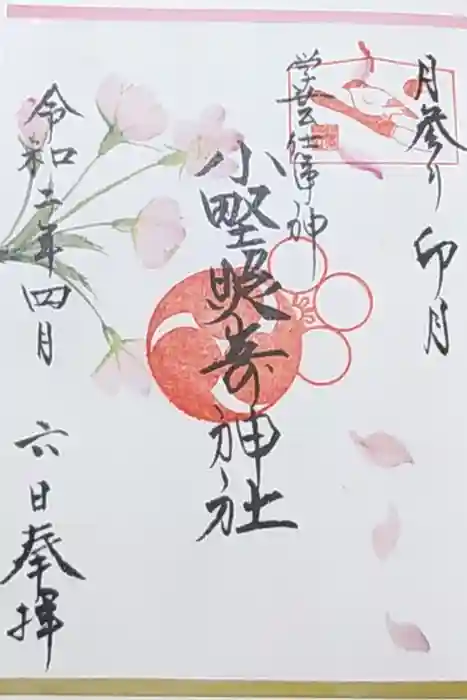 月参り 卯月
学芸仕事神
小野照崎神社
令和二年四月
六日奉拝